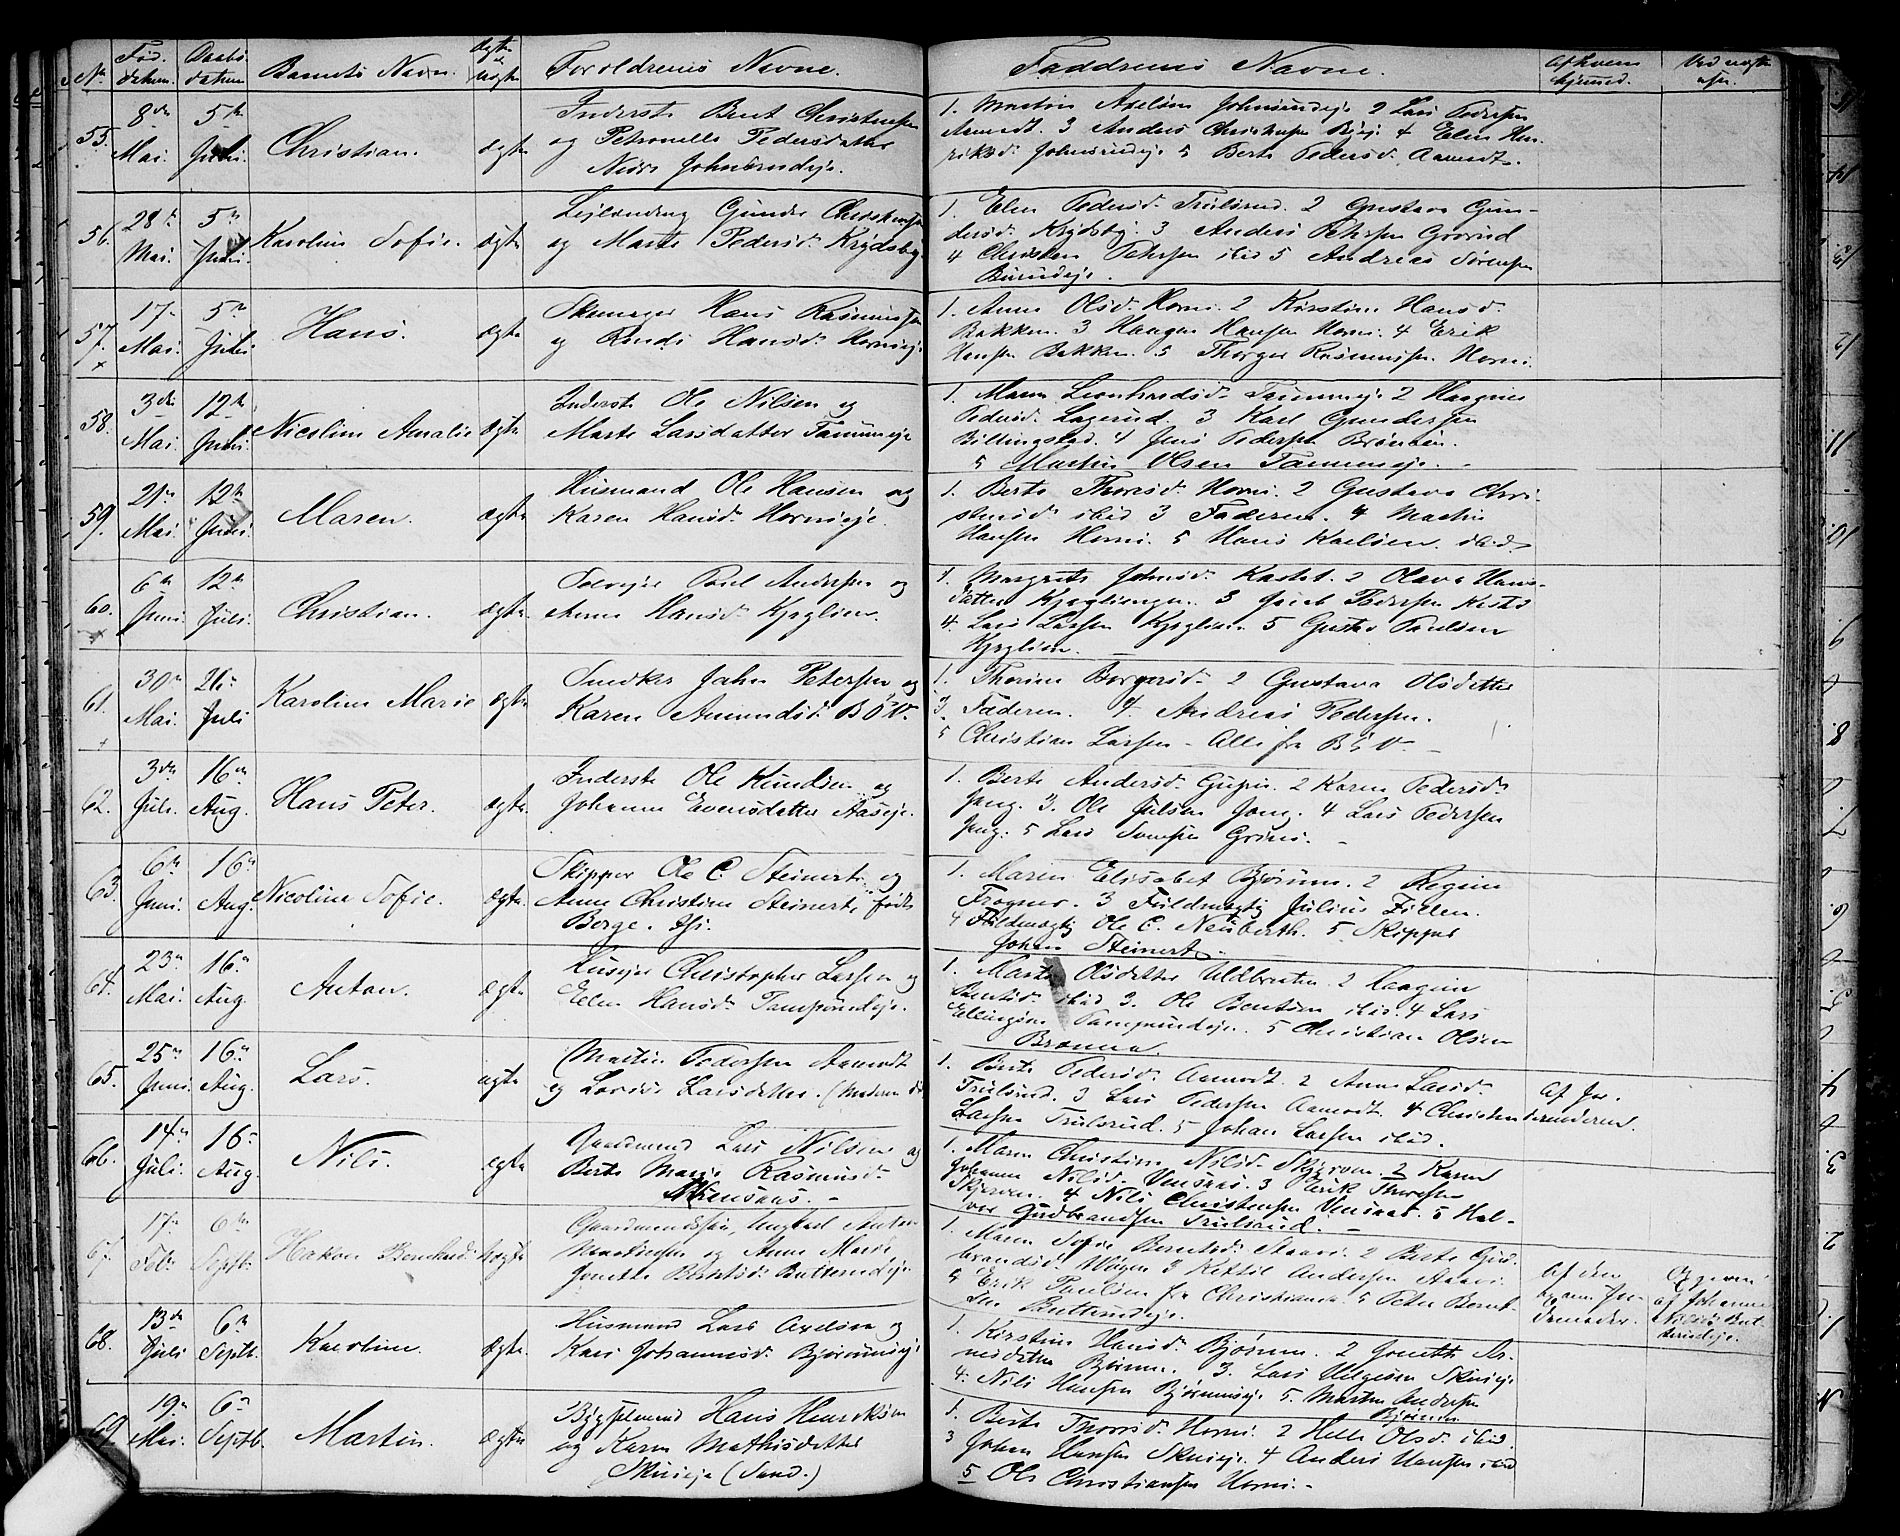 No Fød. datum. Daabs datum Barnets Navn. Ægte el. uægte Forældrenes Navne. Faddrenes Navne. Af hvem hjemed. Ved uægte
55. 8de Mai. 5te Juli. Christian. ægte
Inderst Bent Christensen
og Petronelle Pedersdatter
Nedre Johnsrudeje.
1. Martin Axelsen Johnsrudeje 2 Lars Pedersen
Aamodt. 3 Anders Christensen Bjøj. 4 Elen Hen-
riksd. Johnsrudeje 5 Berte Pedersd. Aamodt.
56. 28de Mai. 5te Juli. Karoline Sofie. ægte
Lejlænding Gunder Christensen
og Marte Pedersd. Krydsby.
1. Elen Pedersd. Trulsrud. 2 Gustava Gun-
dersd. Krydsby. 3 Anders Petersen Grorud
4 Christen Petersen ibid 5 Andreas Sørensen
57. 17de Mai. 5te Juli. Hans. ægte
Skomager Hans Rasmussen
og Randi Hansd. Hornieje
1. Anne Olsd. Horni. 2 Kirstine Hansd.
Bakken. 3 Haagen Hansen Horni. 4 Erik
Hansen Bakken. 5 Thorger Rasmussen Horni.
58. 3die Mai. 12te Juli. Nicoline Amalie ægte
Inderst Ole Nilsen og
Marte Larsdatter Tanumeje
1. Maren Leonhardsd. Tanumeje 2 Haagine
Pedersd. Lagerud. 3 Karl Gundersen
Billingstad. 4 Jens Pedersen Brønøen.
5 Martin Olsen Tanumeje.
59. 21de Mai. 12te Juli. Maren. ægte
Husmand Ole Hansen og
Karen Hansd. Hornieje.
1. Berte Thoresd. Horni. 2 Gustava Chri-
stensd. ibid 3 Faderen. 4 Martin
Hansen Horni. 5 Hans Karlsen ibid.
60. 6te Juni. 12te Juli. Christian. ægte
Selvejer Poul Andersen og
Anne Hansd. Kjaglien.
1. Margrete Johnsd. 2 Olava Hans-
datter Kjaglien. 3 Jacob Pedersen
4. Lars Larsen Kjaglien 5 Gustav Paulsen
Kjaglien.
61. 30te Mai. 26de Juli Karoline Marie ægte
Snedker John Petersen og
Karen Amundsd. BØV.
1. Thorine Borgersd. 2 Gustava Olsdatter
3. Faderen. 4. Andreas Pedersen.
5 Christian Larsen - Alle fra BØV -
62. 3die Juli. 16de Aug. Hans Peter. ægte
Inderst Ole Knudsen og
Johanne Evensdatter Aaseje.
1. Berte Andersd. 2 Karen Pedersd.
Jong. 3. Ole Julsen Jong. 4 Lars Pedersen
Jong. 5 Lars Svensen Grini.
63. 6te Juni. 16de Aug. Nicoline Sofie. ægte
Skipper Ole C. Steinert og
Anne Christine Steinert, født
Borge.
1. Maren Elisabet Bjørum. 2 Regine
Frogner. 3 Fuldmægtig Julius Zillen.
4 Fuldmægtig Ole C. Neuberth. 5 Skipper
Johan Steinert.
64. 23de Mai. 16de Aug. Anton. ægte
Husejer Christopher Larsen og
Elen Hansd.
1. Marte Olsdatter Uldbraaten 2 Haagine
Bentsd. ibid 3. Ole Bentsen ibid. 4 Lars
Ellingsen 5 Christian Olsen
65. 25de Juni. 16de Aug. Lars. ægte
Martin Pedersen Aamodt
og Lovise Larsdatter. (Moderen død)
1. Berte Pedersd. Aamodt. 2 Anne Larsd.
Trulsrud. 3 Lars Pedersen Aamodt. 4 Christen
Larsen Trulsrud. 5 Johan Larsen ibid.
Af Jor-
demoderen.
66. 14de Juli. 16de Aug. Nils. ægte
Gaardmand Lars Nilsen og
Berte Marie Rasmusd.
1. Maren Christine Nilsd. Skjerven. 2 Karen
Johanne Nilsd. 3 Erik Thoresen
Skjerven. 4 Nils Christensen 5 Hal-
vor Gudbrandsen Trulsrud.
67. 17de Febr. 6te Septb. Hakon Bernhard. uægte
Gaardmandssøn, Ungkarl Anton
og Anne Marie
Jonette Berntsd. Butterudeje
1. Maren Sofie Berntsd. 2 Berte Gud-
brandsd. Wøyen 3 Kittil Andersen
4 Erik Paulsen fra Christiania. 5 Peter Bernt-
sen Butterudeje.
Af den
Jor-
demoder.
Opgiven
af Johanne
Nilsd. But-
terudeje.
68. 13de Juli 6te Septb. Karoline. ægte
Husmand Lars Axelsen og
Kari Johannesd. Bjørumseje
1. Kirstine Hansd. Bjørum. 2 Jonette Ar-
nesdatter Bjørum. 3. Lars Helgesen Skuieje
4. Nils Hansen Bjørumseje 5. Morten Andersen
Bjørum
69. 19de Mai. 6te Septb. Martin. ægte
Bygselmand Hans Henriksen
og Karen Mathisdatter
Skuieje (Sand.)
1. Berte Thoresd. Horni. 2 Helle Olsd. ibid.
3 Johan Hansen Skuieje. 4 Anders Hansen ibid
5 Ole Christiansen Horni.